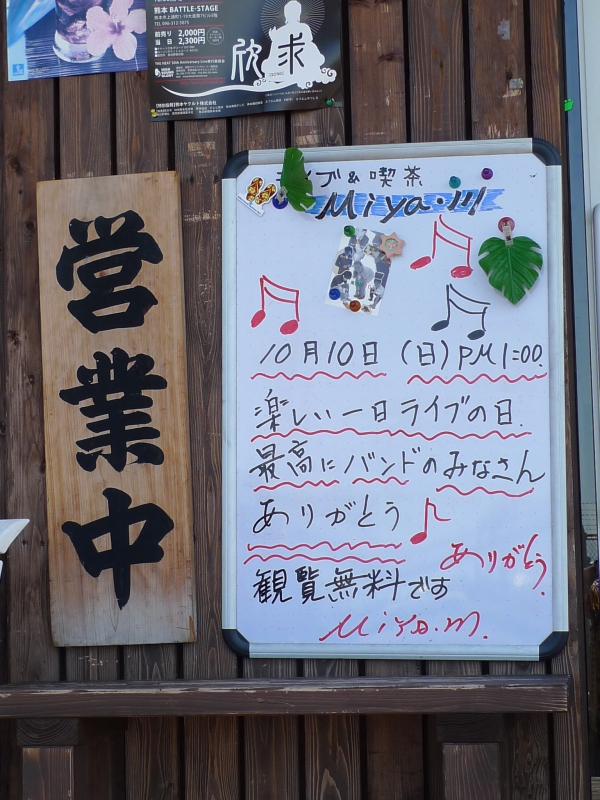 熊本 BATTLE-STAGE
前売り 2,000円
当日 2,300円
欣求
営業中
ライブ&喫茶
Miya.m
10月10日 (日) PM1=00.
楽しい一日ライブの日.
最高にバンドのみなさん
ありがとう
ありがとう.
観覧無料です
Miya.m.